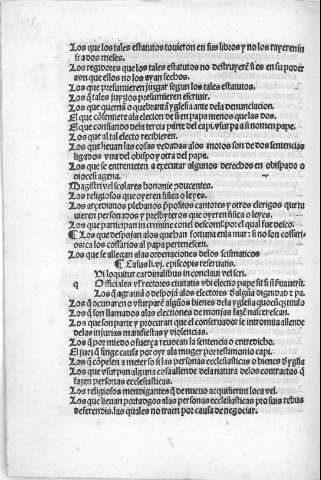 Los que los tales estatutos touieron en sus libros y no los rayeren in
fra dos meses.
Los regidores que los tales estatutos no destruyerẽ si es en su poder
avn que ellos no los ayan fechos.
Los que presumieren juzgar segun los tales estatutos.
Los q̃ tales juyzios presumieren escriuir.
Los que quemã o quebrantã yglesia ante dela denunciacion.
El que cõsentiere als eleccion de si en papa menos que las dos.
El que confiando dela tercia parte del capi. vsurpa si nomen pape.
Los que al tal electo recibieren.
Los que lieuan las cosas vedadas alos moros son de dos sentencias
ligados vna del obispo y otra del papa.
Los que se entremeten a executar algunos derechos en obispado o
diocesi agena.
Magistri vel scolares bononie docentes.
Los religiosos que oyeren fisica o leyes.
Los arçedianos plebanos p̃positos cantores y otros clerigos que tu
uieren personados y presbyteros que oyeren fisica o leyes.
Los que participan in crimine conel descomĩ. por el qual fue desco.
¶ Los que despojan alos que han fortuna enla mar: si no son cossarios
ca los cossarios al papa pertenescen.
Los que se allegan alas ordenaciones delos scismaticos
¶ Casus l. vj. episcopis reseruatis.
Vt loquitur cardinalibus in conclaui vel scri.
q Officiales vl̃ rectores ciuitatis vbi electio pape fit si
Los q̃ agrauiã o despojã alos electores
Los q̃ occuparen o vsurparẽ algũos bienes dela yglesia quocũq̃ titulo
Los q̃ son llamados alas electiones de monjas fazẽ nascer escan.
Los que son parte y procuran que el conseruador se intromita allende
delas injurias manifiestas y violencias.
Los q̃ por miedo o fuerça reuocan la sentencia o entredicho.
El juez q̃ finge causa por oyr ala muger por testimonio capi.
Los q̃ cõpelen a meter so si las personas ecclesiasticas o bienes d̃ ygl̃ia
Los que vsurpan alguna cosa allende dela natura delos contractos q̃
fazen personas ecclesiasticas.
Los religiosos mendigantes q̃ de nueuo acquirieren loca vel.
Los que lieuan portadgos alas personas ecclesiasticas pro suis rebus
deferendis. las quales no traen por causa de negociar.